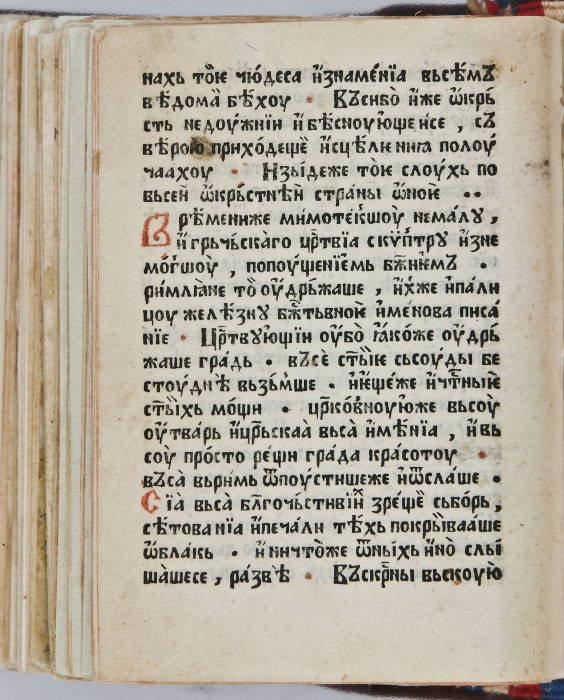 нахь то́ю чю́деса и҆знаме́нїа вьсѣ́мъ
вѣ́дома̀ бѣ́хоу • Къси́бо̀ и҆же ѡ҆кръ́
сть недоу́жнїи и҆ бѣсноу́юще и҆се , съ
вѣ́рою̀ приходеще̏ и҆сцѣ́лениꙗ полоу́
чаахоу • И҆зы́деже то́ю слоу́хь по
вьсеи̏ ѡ҆крь́стнѣи̏ страны̀ ѡ҆ною̀ ••
Врѣ́мениже мимоте́кшоу̀ нема́лу ,
и҆ грьчь́скаго цр҃твїа ски́птру и҆зне
мо́гшоу , попоу́щенїе́мь бж҃нїемъ •
ри́млꙗне то̀ оу҆дрь́жаше , и҆́хже и҆па́ли
цоу желѣ́зну бж҃ть́вною̀ и҆ме́нова писа́
нїе • Цр҃твꙋ́ющїи оу҆бо̀ ꙗ҆ко́же оу҆дрь́
жаше гра́дь • въсе̏ ст҃ы́ю сьсоу́ды бе
стоу́днѣ възь́мше • и҆ю҆ще́же и҆чт҃ны́ю
ст҃ы́хь мо́щи • цр҃ко́вноу́юже вьсоу̀
оу҆тва́рь и҆ цр҃ь́скаа̀ вьса̀ и҆мѣ́нїа , и҆ вь
соу̀ про́сто рещи гра́да красотоу̀ •
въса̀ вьри́мь ѿпоу́стишеже и҆ ѿсла́ше •
Сїа̀ вьса̀ бл҃гочь́стивїи҆ зре́ще̏ сьбо́рь ,
сѣ́тованїа и҆печа́ли тѣ́хь покры́ваа́ше
ѡ҆́блакь • и҆ ничто́же ѿны́хь и҆но̀ слы́
ша́шесе , ра́звѣ • Въскр҃ны вьскоую̀